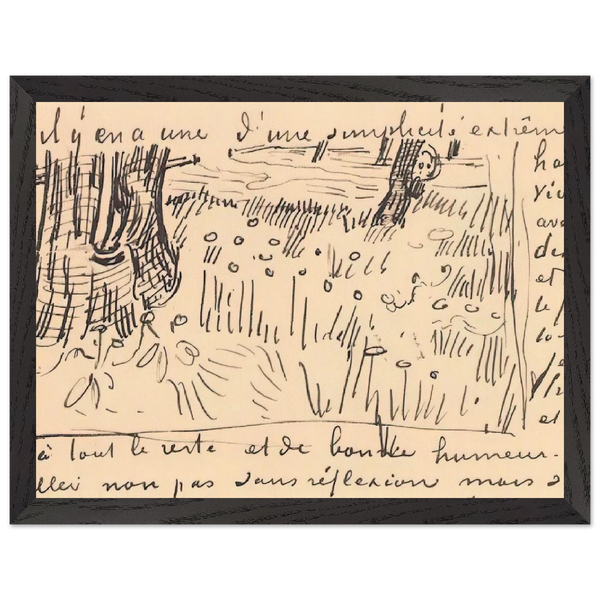 il y en a une d'une simplicité extrêm
ha
av
de
et
et
à tout le reste et de bonne humeur.
non pas sans réflexion mais